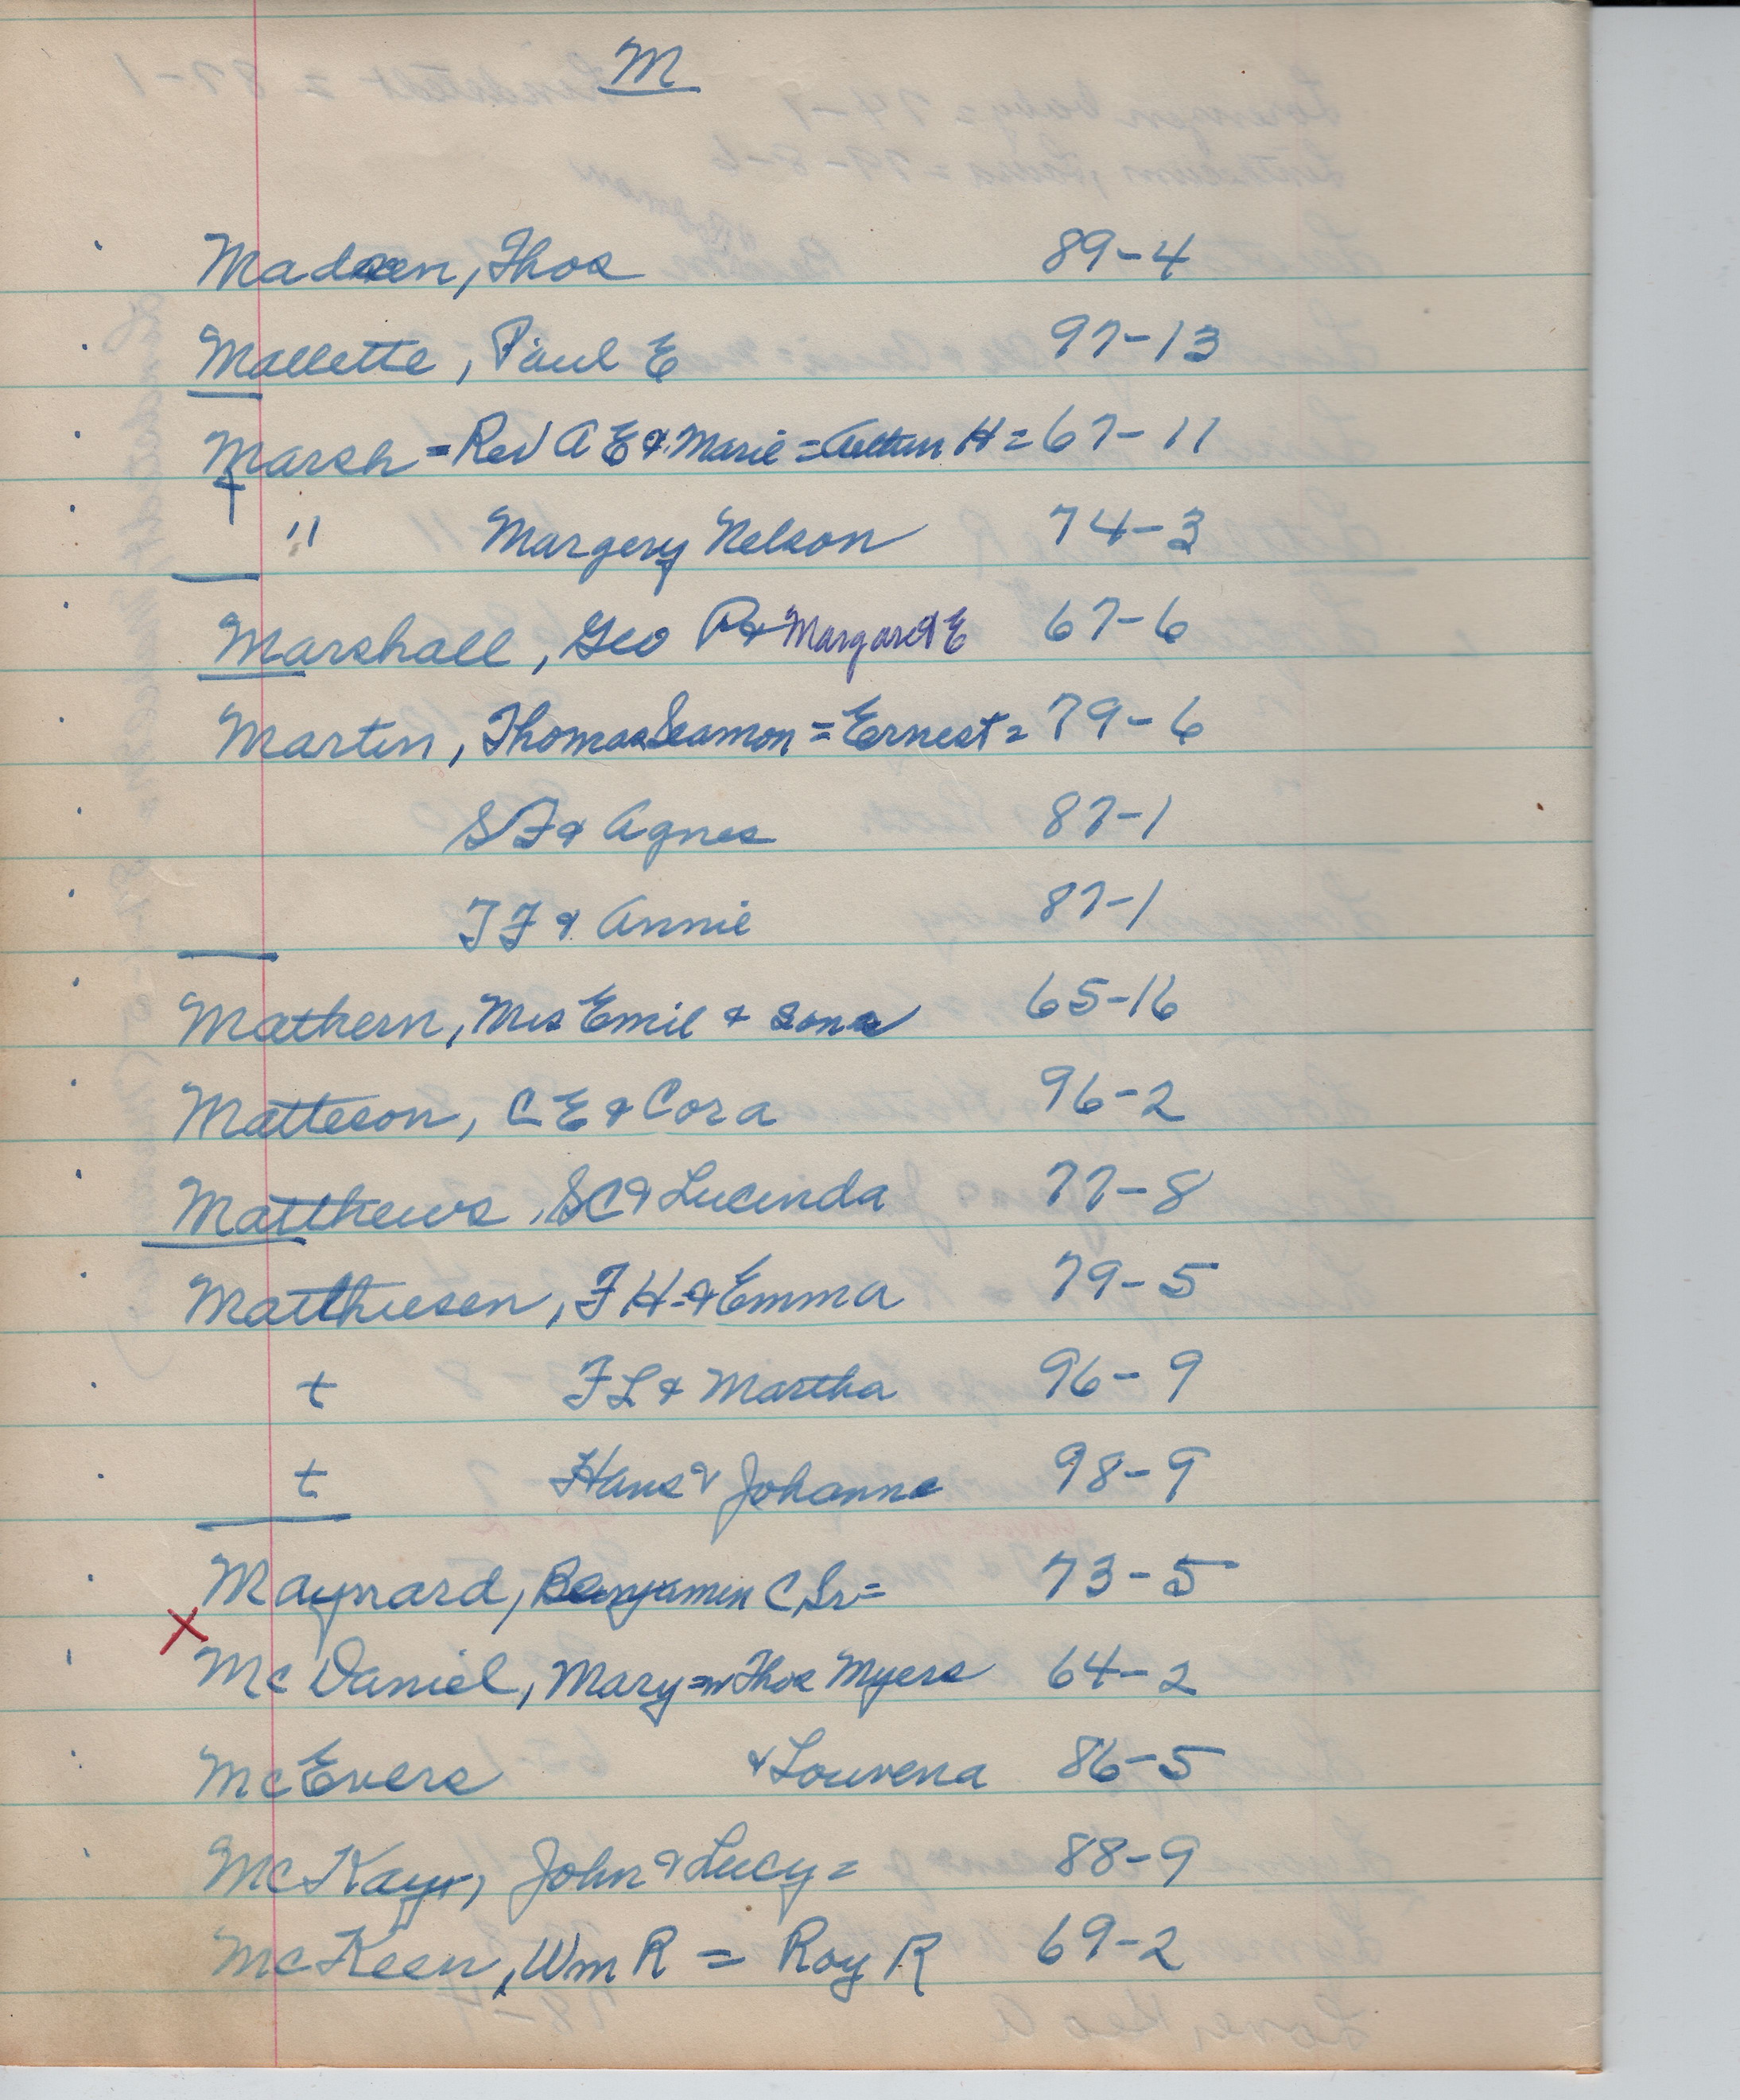 M
Madsen, Thos 89-4
Mallette, Paul E 97-13
Marsh = Rev A E & Marie = Arthur H = 67-11
" Margery Nelson 74-3
Marshall, Geo P & Margaret E 67-6
Martin, Thomas Seamon = Ernest = 79-6
S F & Agnes 87-1
T F & Annie 87-1
Mathern, Mrs Emil & sons 65-16
Matteson, C E & Cora 96-2
Matthews, S C & Lucinda 77-8
Matthiesen, F H & Emma 79-5
t F L & Martha 96-9
t Hans & Johanne 98-9
Maynard, Benjamin C, Sr = 73-5
X
McDaniel, Mary = Thos Myers 64-2
McEvers & Louvena 86-5
McKay, John & Lucy = 88-9
McKeen, Wm R = Roy R 69-2